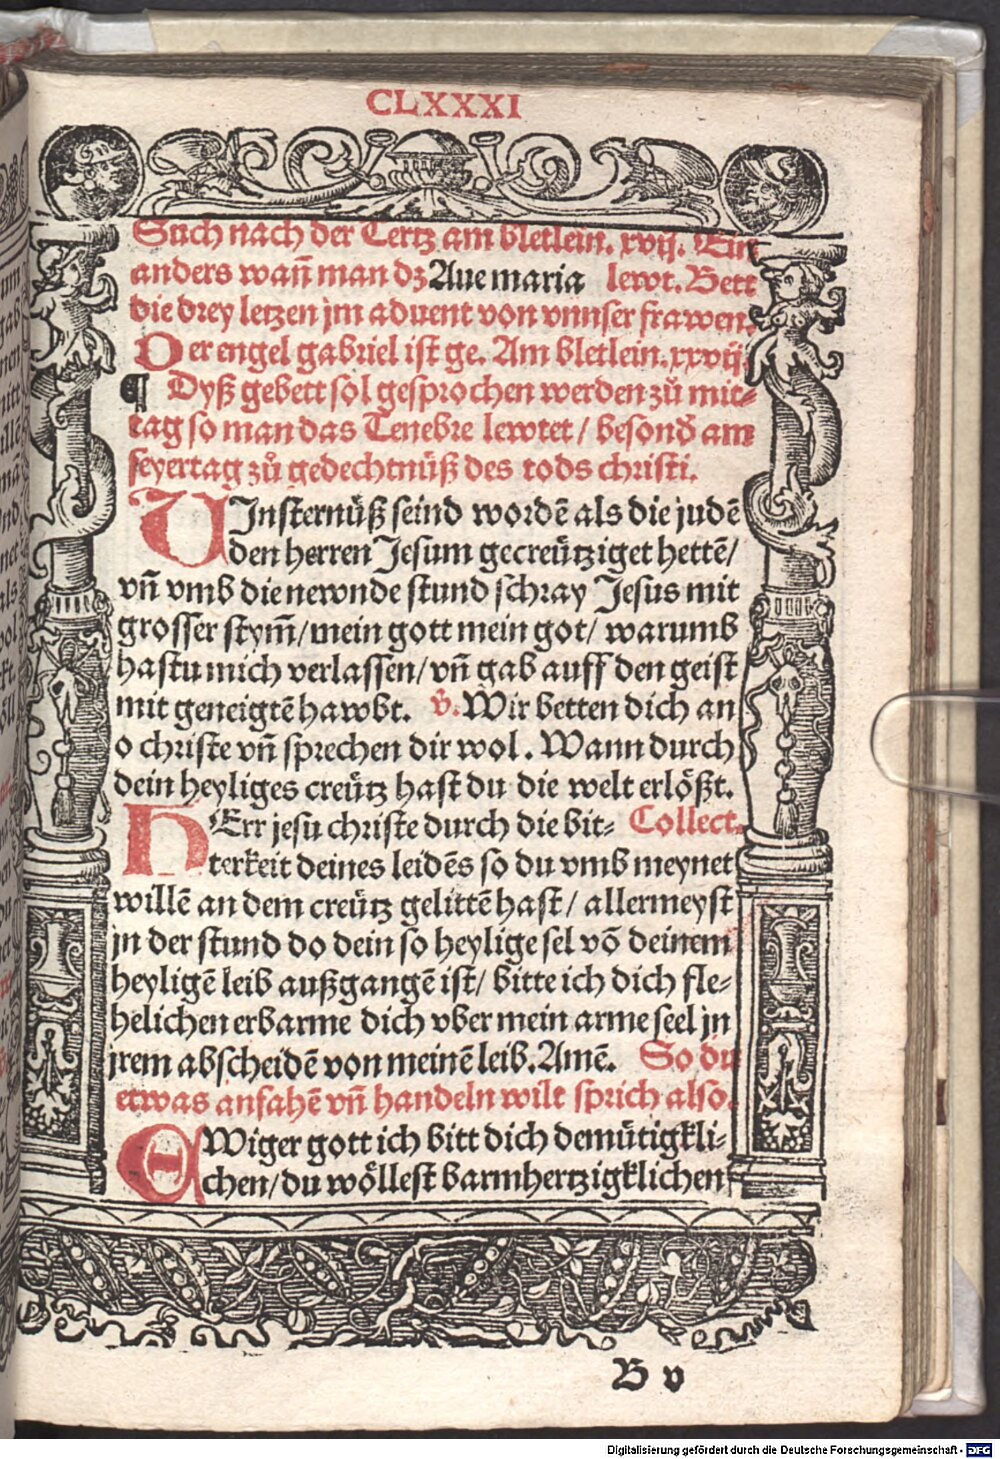 CLXXXI
Such nach der Tertz am bletlein. xvij. Ein
anders wañ man dz Aue maria lewt. Bett
die drey letzen jm aduent von vnnser frawen.
Der engel gabriel ist ge. Am bletlein. xxvij.
¶ Dyß gebett sol gesprochen werden zů mit⸗
tag so man das Tenebre lewtet / besond̄ am
feyertag zů gedechtnüß des tods christi.
VInsternüß seind wordē als die judē
den herren Jesum gecreütziget hettē /
vñ vmb die newnde stund schray Jesus mit
grosser stym̄ / mein gott mein got / warumb
hastu mich verlassen / vñ gab auff den geist
mit geneigtē hawbt. v̄. Wir betten dich an
o christe vñ sprechen dir wol. Wann durch
dein heyliges creütz hast du die welt erlößt.
HErr jesu christe durch die bit⸗ Collect.
terkeit deines leidēs so du vmb meynet
willē an dem creütz gelittē hast / allermeyst
jn der stund do dein so heylige sel vō deinem
heyligē leib außgangē ist / bitte ich dich fle⸗
helichen erbarme dich vber mein arme seel jn
jrem abscheidē von meinē leib. Amē. So du
etwas anfahē vñ handeln wilt sprich also.
EWiger gott ich bitt dich demütigkli⸗
chen / du wöllest barmhertzigklichen
B v
Digitalisierung gefördert durch die Deutsche Forschungsgemeinschaft - DFG